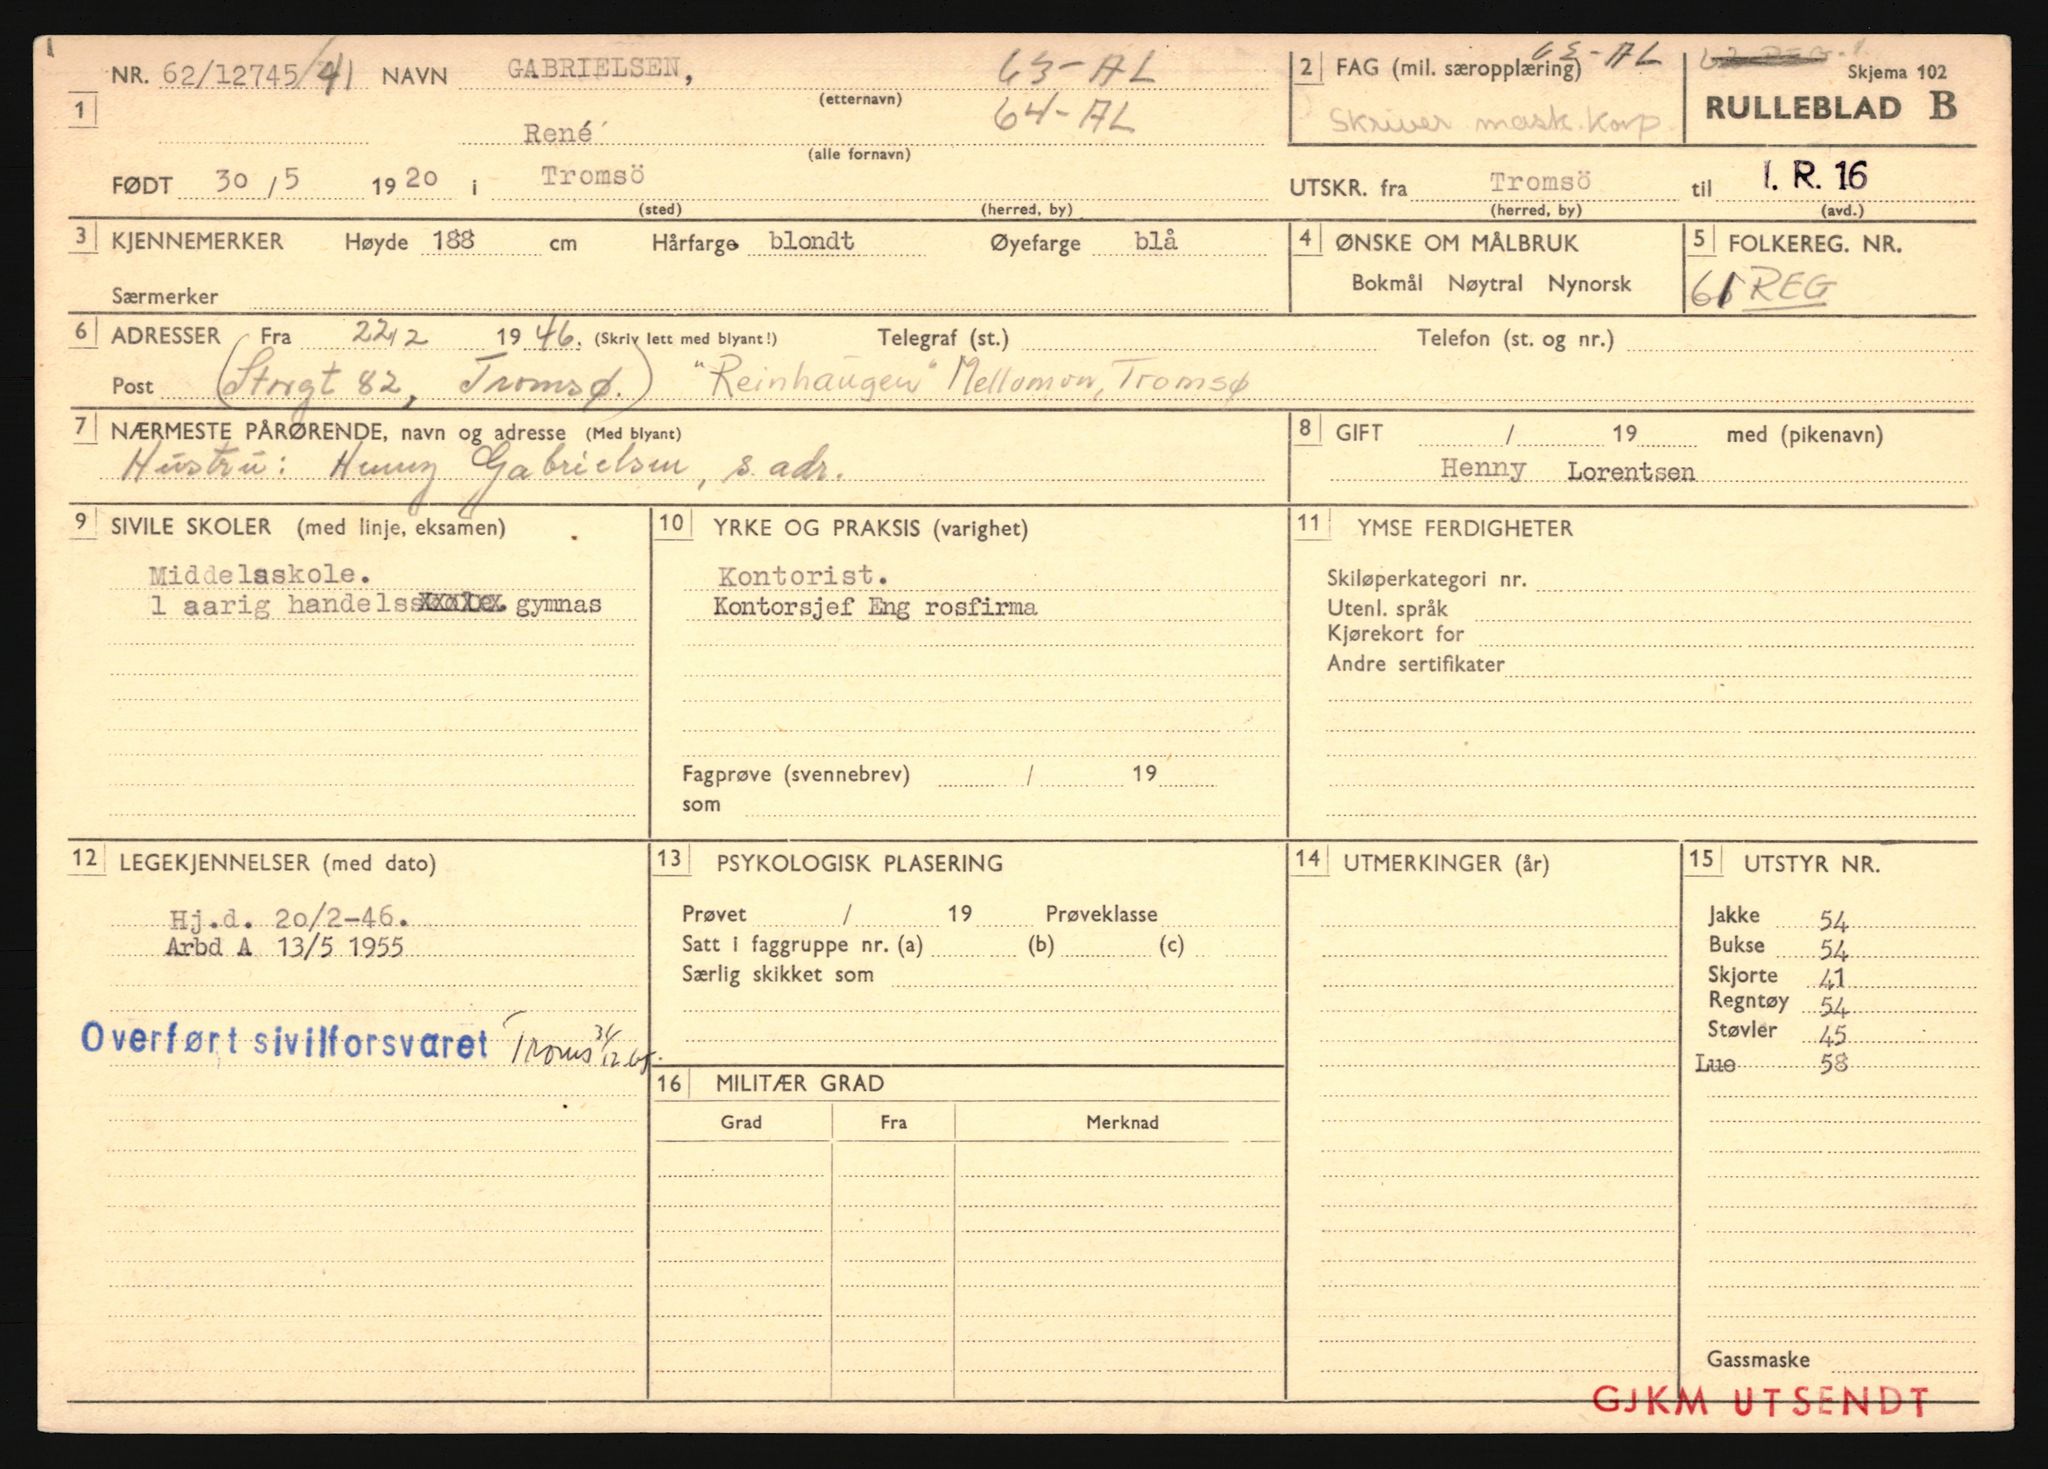 NR. 62/12745/41 NAVN GABRIELSEN, 63-AL
(etternavn) 64-AL
René
(alle fornavn)
1
FØDT 30/5 1920 i Tromsö
(sted) (herred, by)
2 FAG (mil. særopplæring) 63-AL
Skriver mask.komp.
Skjema 102
RULLEBLAD B
UTSKR. fra Tromsö til I. R. 16
(herred, by) (avd.)
3 KJENNEMERKER Høyde 188 cm Hårfarge blondt Øyefarge blå
Særmerker
4 ØNSKE OM MÅLBRUK
Bokmål Nøytral Nynorsk
5 FOLKEREG. NR.
61 REG
6 ADRESSER Fra 22/2 1946. (Skriv lett med blyant!) Telegraf (st.) Telefon (st. og nr.)
Post (Storgt 82, Tromsø.) "Reinhaugen" Tromsø
7 NÆRMESTE PÅRØRENDE, navn og adresse (Med blyant)
Hustru: Henny Gabrielsen, s. adr.
8 GIFT / 19 med (pikenavn)
Henny Lorentsen
9 SIVILE SKOLER (med linje, eksamen)
Middelaskole.
1 aarig handels gymnas
10 YRKE OG PRAKSIS (varighet)
Kontorist.
Kontorsjef Eng rosfirma
Fagprøve (svennebrev) / 19
som
11 YMSE FERDIGHETER
Skiløperkategori nr.
Utenl. språk
Kjørekort for
Andre sertifikater
12 LEGEKJENNELSER (med dato)
Hj.d. 20/2-46.
Arbd A 13/5 1955
Overført sivilforsvaret Troms
13 PSYKOLOGISK PLASERING
Prøvet / 19 Prøveklasse
Satt i faggruppe nr. (a) (b) (c)
Særlig skikket som
16 MILITÆR GRAD
Grad Fra Merknad
14 UTMERKINGER (år)
15 UTSTYR NR.
Jakke 54
Bukse 54
Skjorte 41
Regntøy 54
Støvler 45
Lue 58
Gassmaske
GJKM UTSENDT